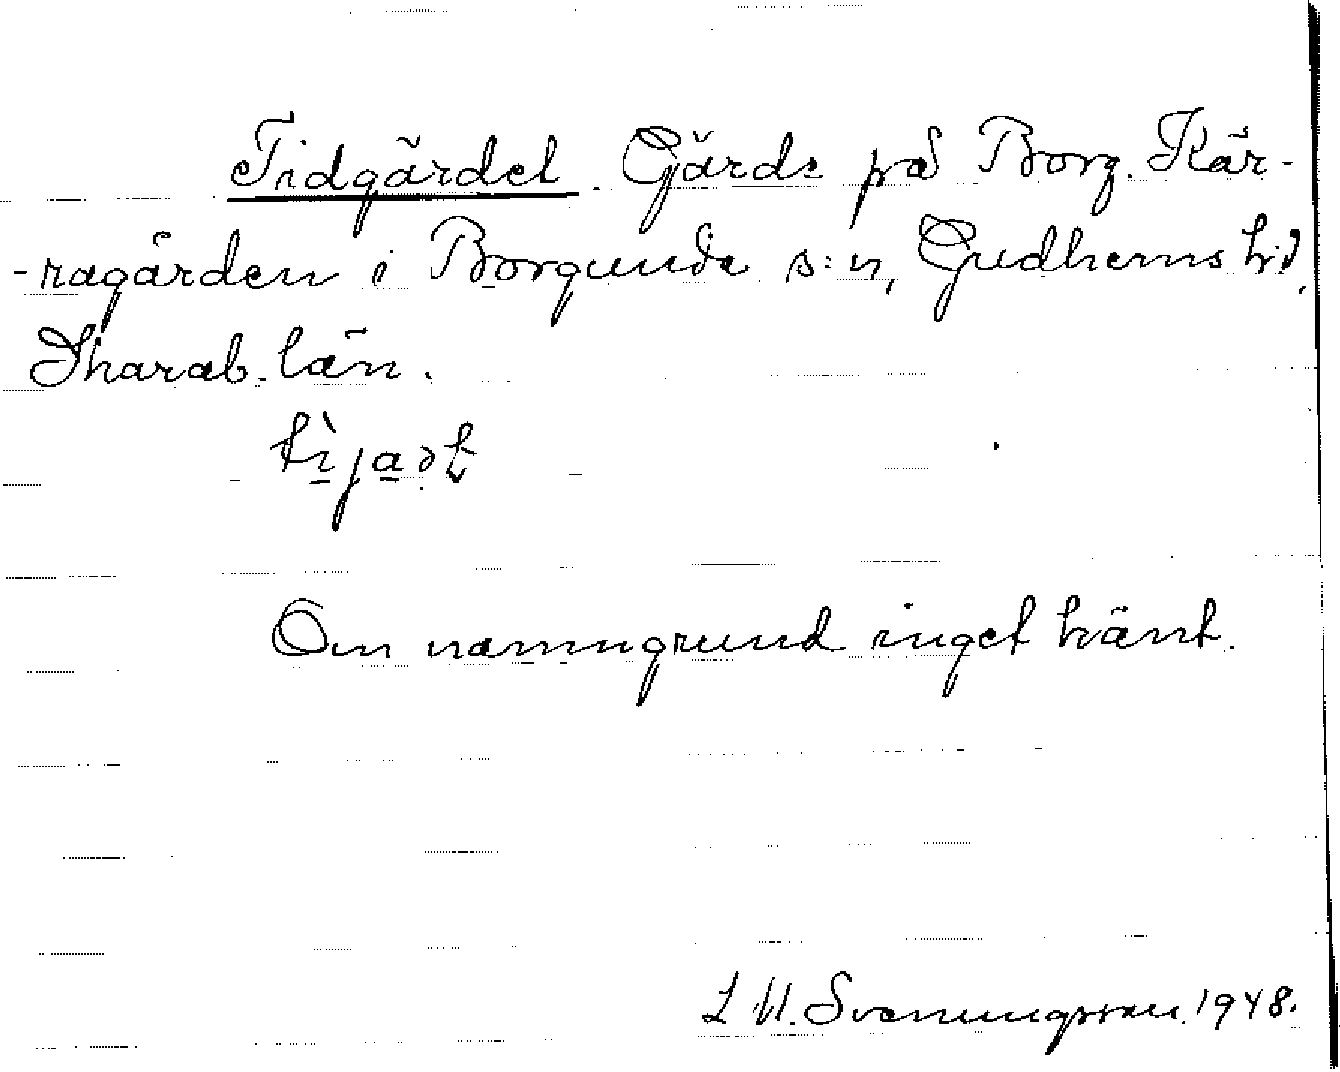 Tidgärdet. Gärde på Borg. Kär-
-ragården i Borgunda s:n, Gudhems hd,
Skarab. län.
Om namngrund inget känt.
Svenungsson 1948.